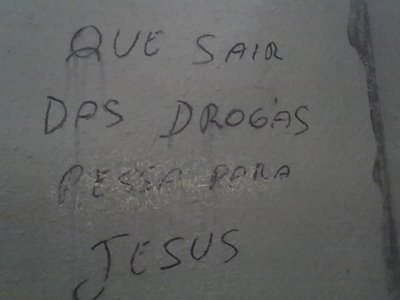 QUE SAIR
DAS DROGAS
PESSA PARA
JESUS